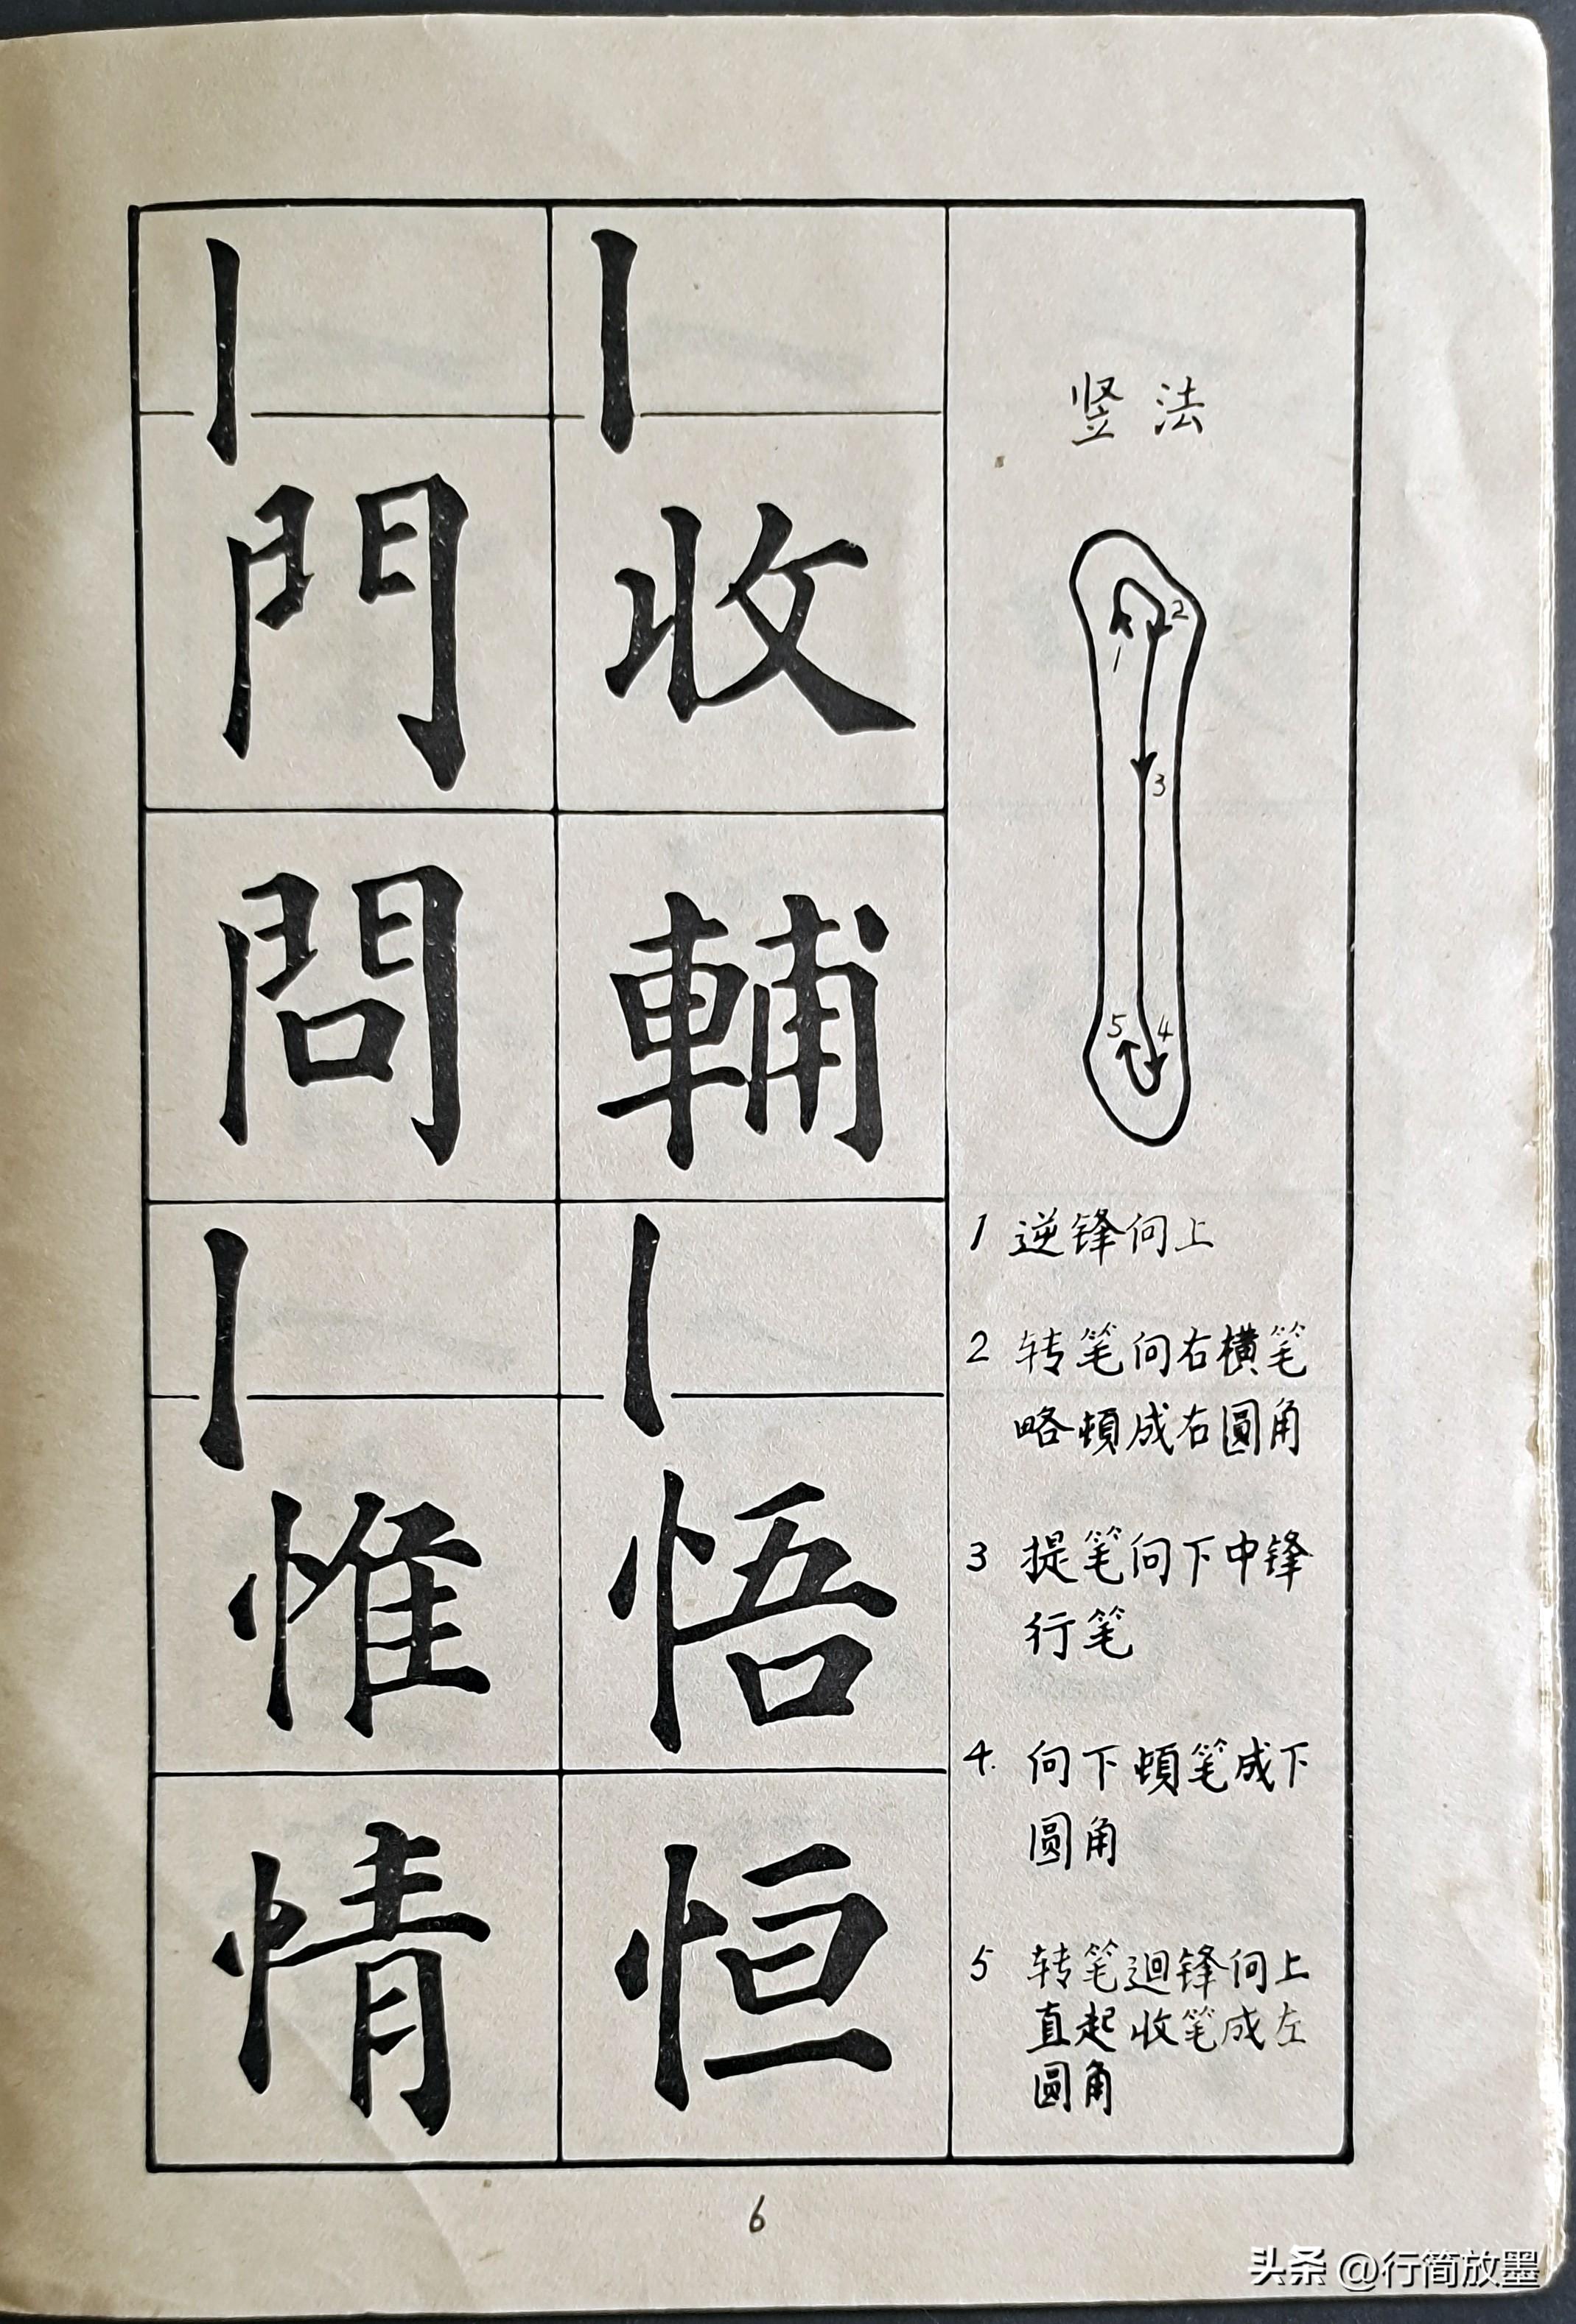 竖法
1
2
3
4
5
1 逆锋向上
2 转笔向右横笔
略頓成右圆角
3 提笔向下中锋
行笔
4. 向下頓笔成下
圆角
5 转笔迴锋向上
直起收笔成左
圆角
收
輔
悟
恒
門
問
惟
情
6
头条 @行简放墨